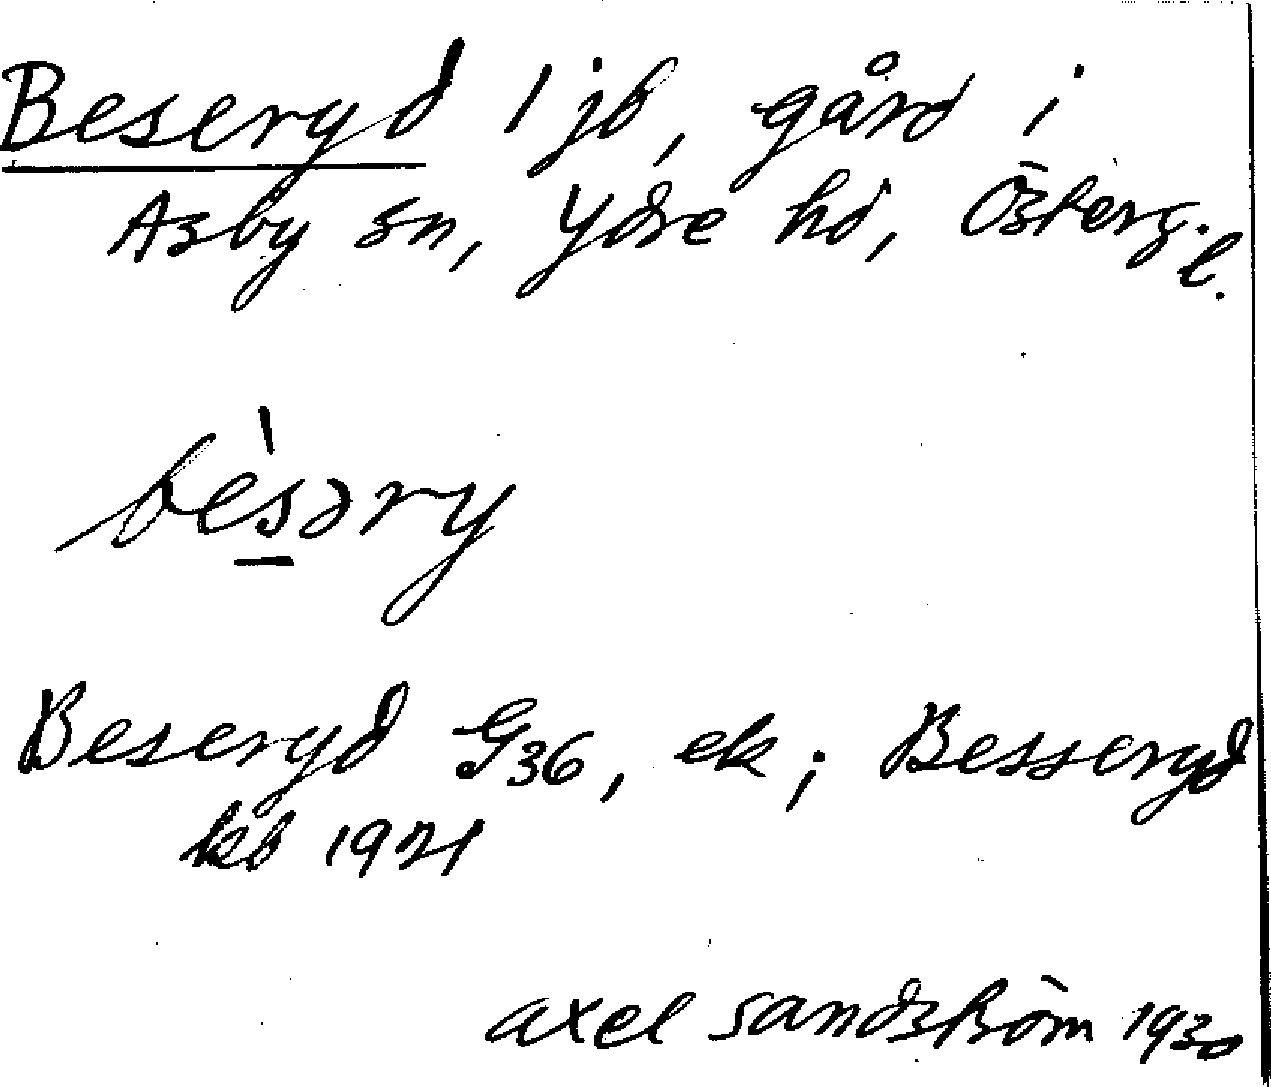 Beseryd 1 jb, gård i
Asby sn, Ydre hd, Österg.l.
bèsəry
Beseryd G36, ek; Besseryd
kb 1921
axel sandström 1930